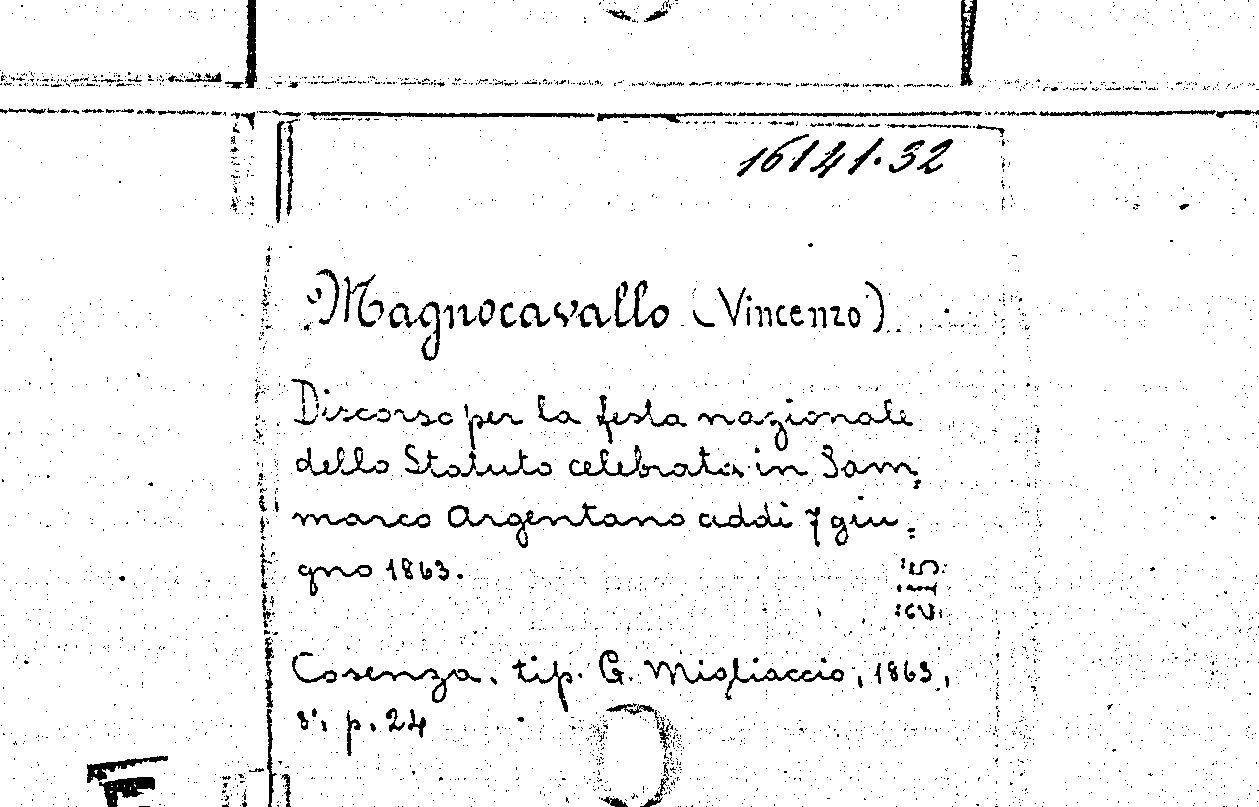 16141.32
Magnocavallo (Vincenzo)
Discorso per la festa nazionale
dello Statuto celebrata in Sam=
marco Argentano addi 7 giu=
gno 1863.
Cosenza, tip. G. Migliaccio, 1863,
8°, p. 24